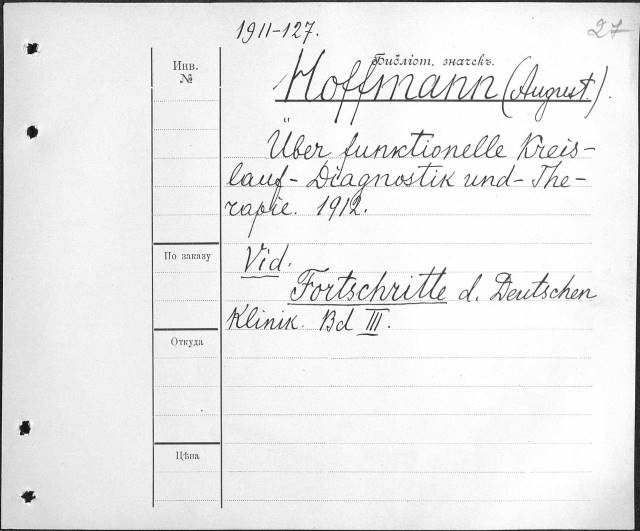 1911-127.
27
Инв.
№
Библіот. значекъ.
Hoffmann (August).
Über funktionelle Kreis-
lauf- Diagnostik und- The-
rapie. 1912.
По заказу
Vid.
Fortschritte d. Deutschen
Klinik. Bd III.
Откуда
Цѣна